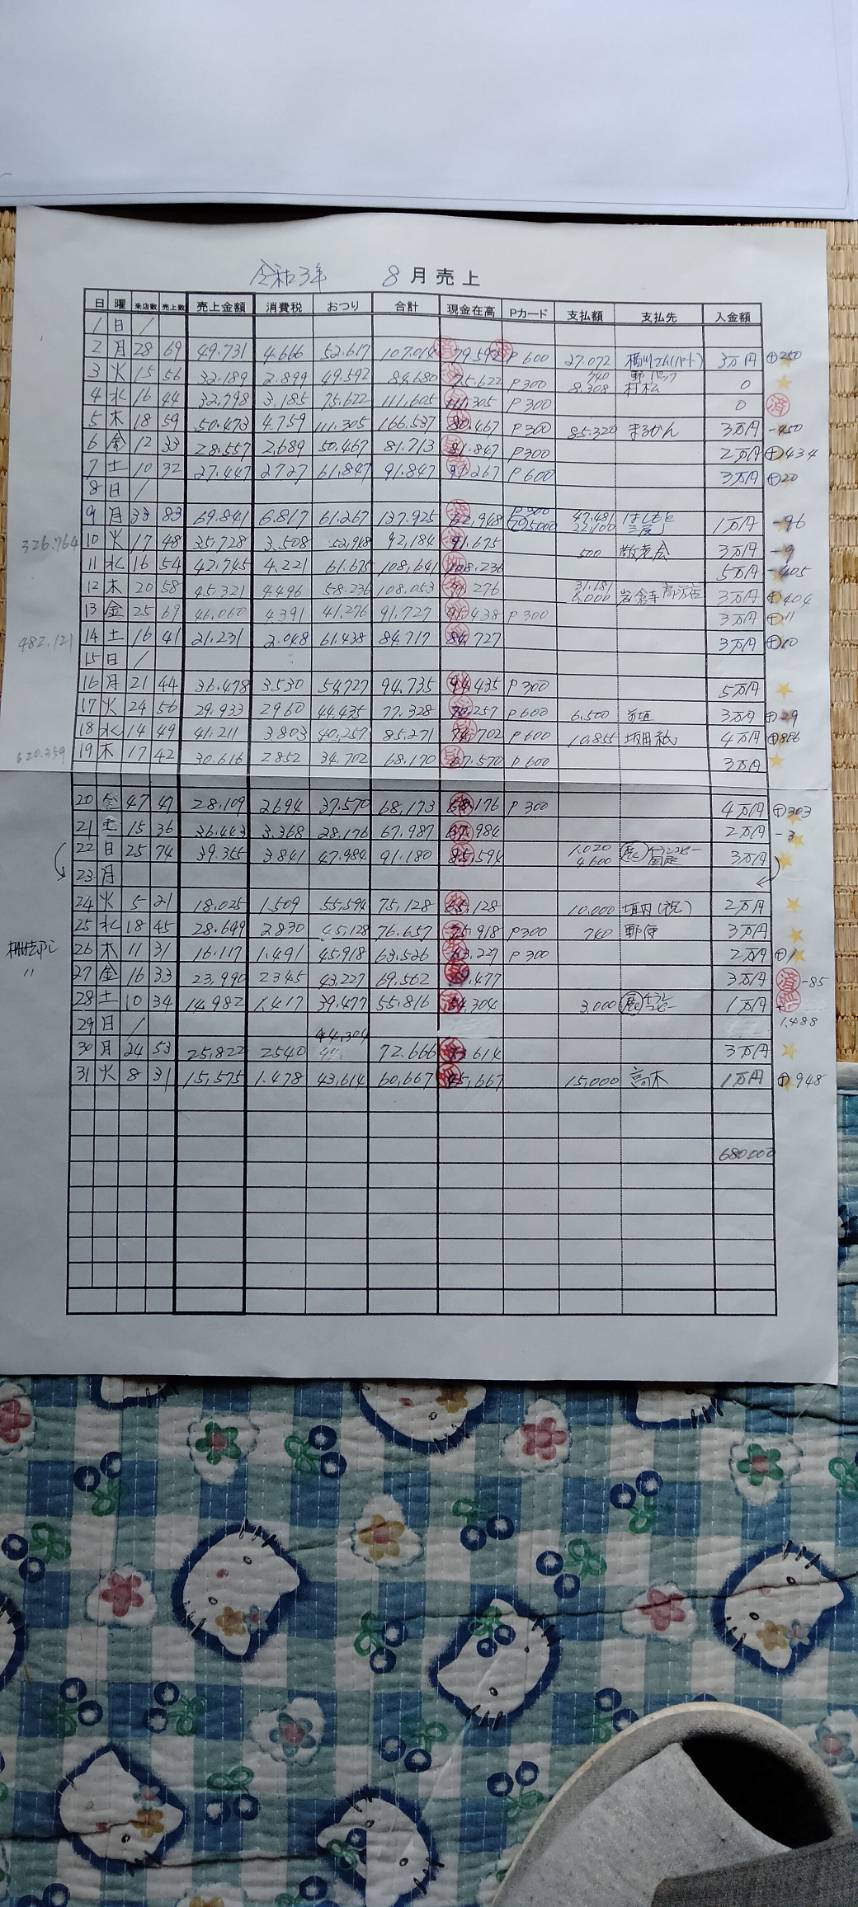 令和3年 8月売上
日 曜 来店数 売上数 売上金額 消費税 おつり 合計 現金在高 Pカード 支払額 支払先 入金額
1 日 /
2 月 28 69 49.731 4.666 52.617 107.014 79.592 P 600 27.072 3万円 ⊕250
3 火 15 56 32.189 2.899 49.592 84.680 75.622 P 300 740 8.308 村松 0
4 水 16 44 32.798 3.185 75.622 111.605 111.305 P 300 0 済
5 木 18 59 50.473 4.759 111.305 166.537 80.467 P 300 85.320 まるかん 3万円 -450
6 金 12 33 28.557 2.689 50.467 81.713 81.847 P300 2万円 ⊕434
7 土 10 32 27.447 2727 61.847 91.847 91.267 P 600 3万円 ⊕20
8 日 /
9 月 33 83 69.841 6.817 61.267 137.925 62.948 P300 47.481 22.100 はしもと 1万円 -96
326.764
10 火 17 48 35.728 3.508 52.948 92,184 91.675 500 敬老会 3万円 -9
11 水 16 54 42.745 4.221 61.675 108,641 108.236 5万円 -405
12 木 20 58 45.321 4.496 58.236 108.053 31.181 6.000 3万円 ⊕404
13 金 25 69 46.060 4.391 41.276 91.727 91.438 P 300 3万円 ⊕11
482.121
14 土 16 41 21.231 2.048 61.438 84.717 84.727 3万円 ⊕10
15 日 /
16 月 21 44 36.478 3.530 54.727 94.735 94.435 P 300 5万円
17 火 24 56 29.933 2960 44.435 77.328 70.257 P600 6.500 3万円 ⊕29
18 水 14 49 41.211 3803 40.257 85.271 74.702 P 600 10.855 坂田紙 4万円 ⊕886
620.359
19 木 17 42 30.616 2852 34.702 68.170 67.570 P 600 3万円
20 金 47 47 28.109 2694 37.570 68,173 68.176 P 300 4万円 ⊕303
21 土 15 36 36.443 3.368 28.176 67.987 67.984 2万円 -3
22 日 25 74 39.355 3.841 47.984 91.180 85.594 1.020 4.600 3万円
23 月
24 火 5 21 18.025 1.509 55.594 75,128 65.128 10.000 垣内(祝) 2万円
25 水 18 45 28.699 2830 45.128 76.657 75.918 P300 740 郵便 3万円
棚卸し
26 木 11 31 16.117 1.491 45.918 63.526 63.227 P 300 2万円 ⊕1
〃
27 金 16 33 23.990 2345 43.227 69.562 69.477 3万円 済 -85
28 土 10 34 14.982 1.417 39.477 55.816 54.304 3.000 1万円 済
29 日 / 1.488
44.304
30 月 24 53 25.822 2540 72.666 73.614 3万円
31 火 8 31 15,575 1.478 43.614 60.667 45.667 15.000 高木 1万円 ⊕948
680.000